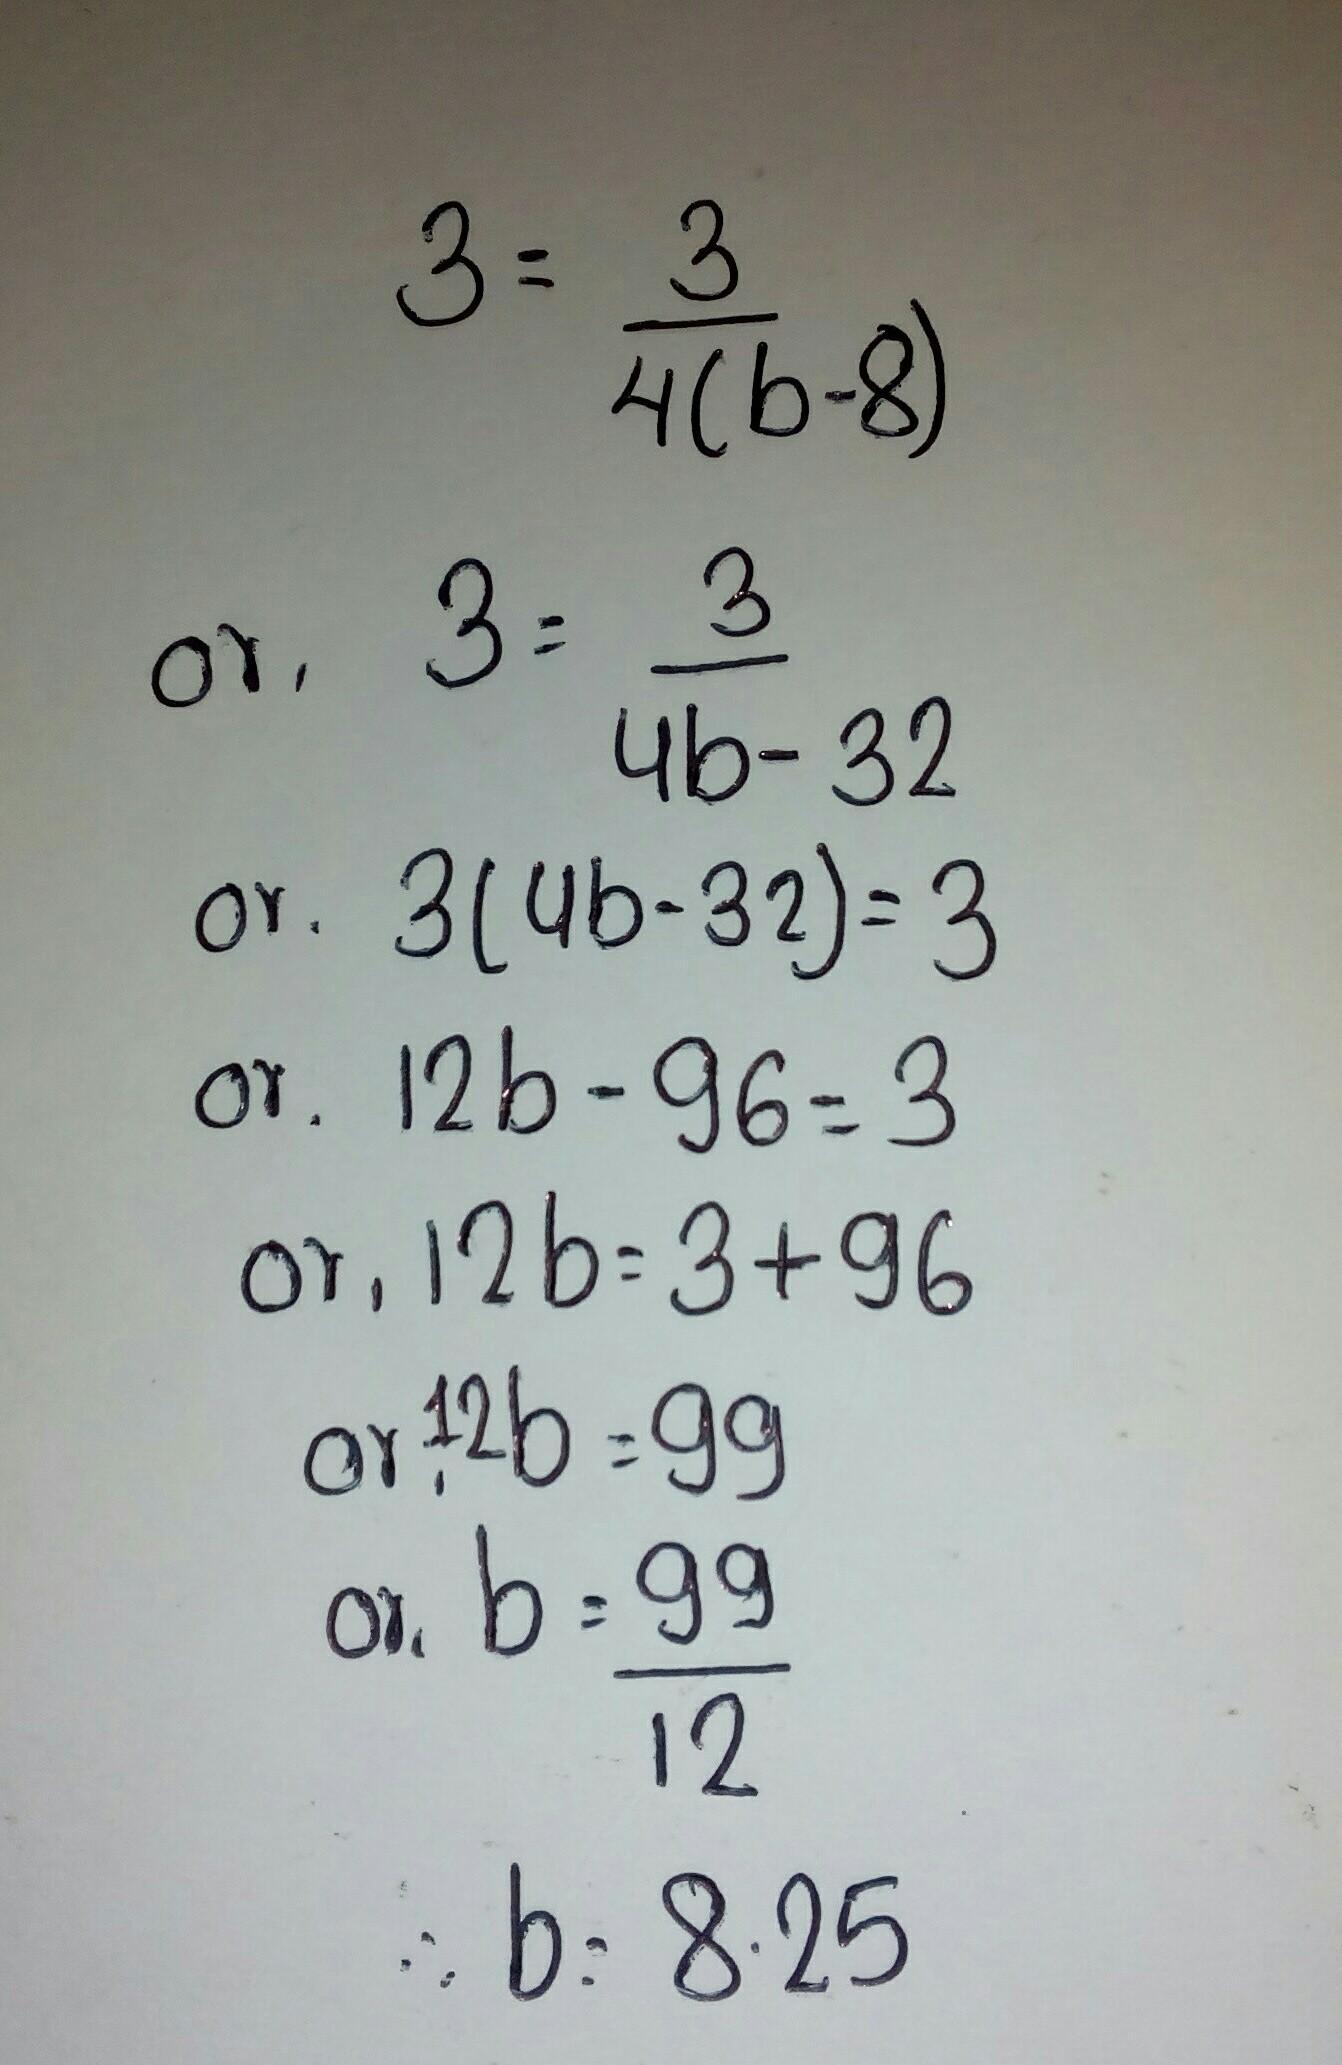 3 = 3/4(b-8)
or, 3 = 3/4b-32
or. 3(4b-32)=3
or. 12b-96=3
or, 12b=3+96
or, 12b=99
or. b=99/12
∴ b= 8.25